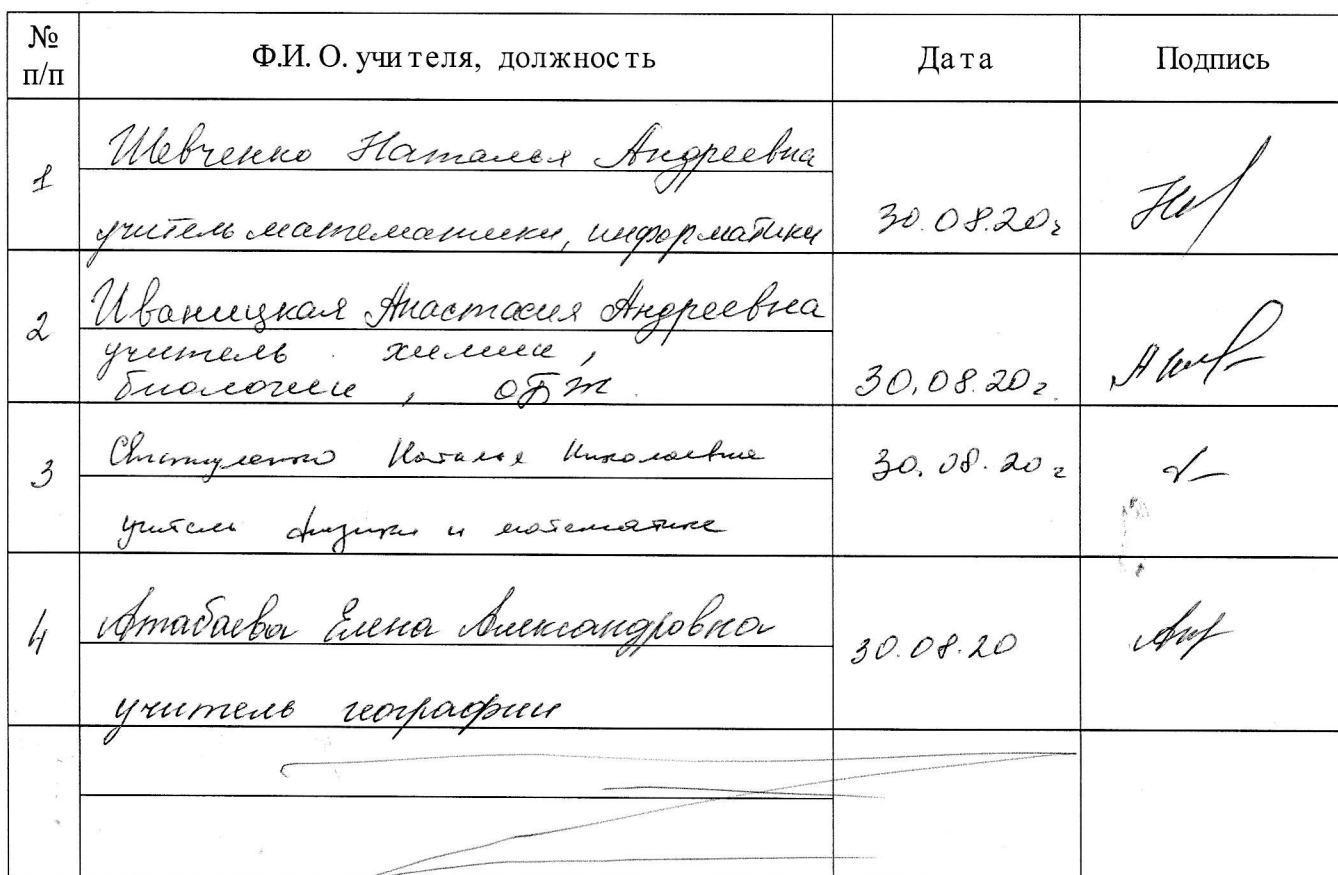 № п/п
Ф.И. О. учителя, должность
Дата
Подпись
1
Шевченко Наталья Андреевна
учитель математики, информатики
30.08.20г
2
Иваницкая Анастасия Андреевна
учитель химии,
биологии, ОБЖ
30.08.20г.
3
Наталья Николаевна
30.08.20г
учитель физики и математике
4
Атабаева Елена Александровна
30.08.20
учитель географии